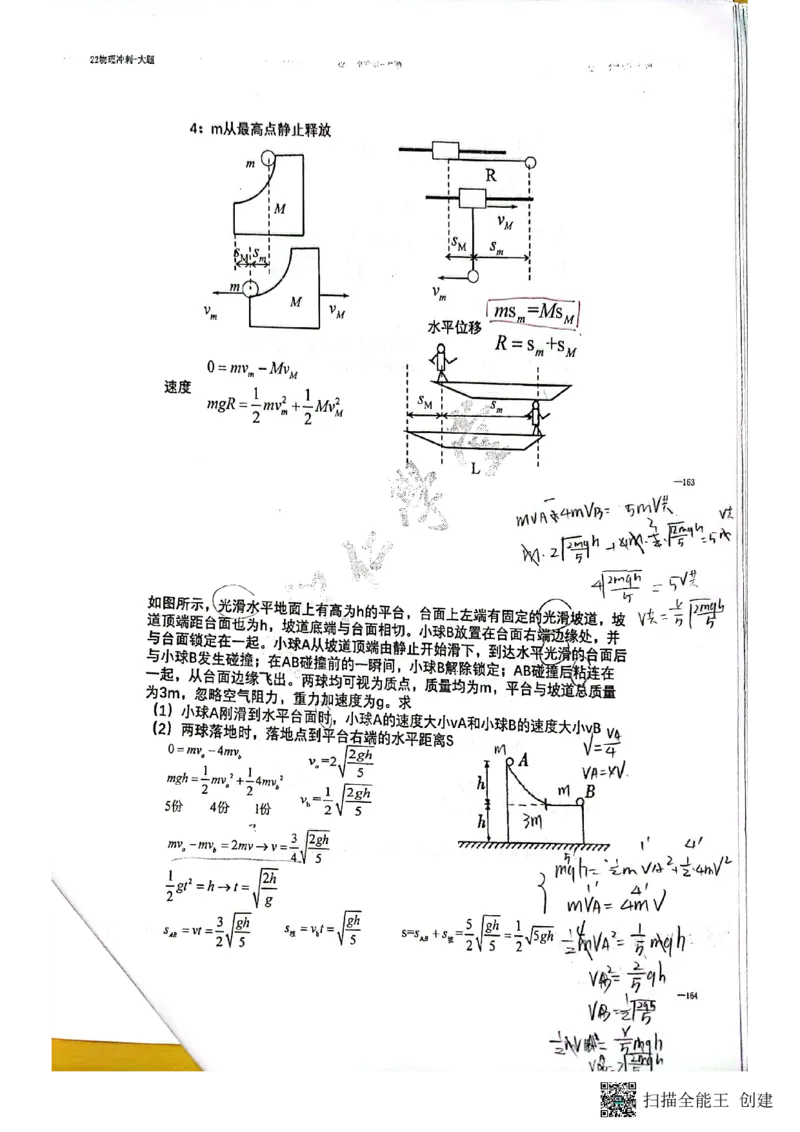 22物理冲刺-大题
4：m从最高点静止释放
m
M
R
v_M
s_M s_m
s_M s_m
m
M
v_m v_M
v_m
水平位移
ms_m=Ms_M
R=s_m+s_M
速度
0=mv_m-Mv_M
mgR=\frac{1}{2}mv_m^2+\frac{1}{2}Mv_M^2
s_M s_m
L
—163
mvA 4mvB= 5mv共
4\sqrt{\frac{2mgh}{5}} = 5v共
如图所示，光滑水平地面上有高为h的平台，台面上左端有固定的光滑坡道，坡
道顶端距台面也为h，坡道底端与台面相切。小球B放置在台面右端边缘处，并
与台面锁定在一起。小球A从坡道顶端由静止开始滑下，到达水平光滑的台面后
与小球B发生碰撞；在AB碰撞前的一瞬间，小球B解除锁定；AB碰撞后粘连在
一起，从台面边缘飞出。两球均可视为质点，质量均为m，平台与坡道总质量
为3m，忽略空气阻力，重力加速度为g。求
（1）小球A刚滑到水平台面时，小球A的速度大小vA和小球B的速度大小vB
（2）两球落地时，落地点到平台右端的水平距离S
0=mv_a-4mv_b
v_a=2\sqrt{\frac{2gh}{5}}
mgh=\frac{1}{2}mv_a^2+\frac{1}{2}4mv_b^2
v_b=\frac{1}{2}\sqrt{\frac{2gh}{5}}
5份 4份 1份
mv_a-mv_b=2mv→v=\frac{3}{4}\sqrt{\frac{2gh}{5}}
\frac{1}{2}gt^2=h→t=\sqrt{\frac{2h}{g}}
s_{AB}=vt=\frac{3}{2}\sqrt{\frac{gh}{5}}
s_板=v_bt=\sqrt{\frac{gh}{5}}
S=s_{AB}+s_板=\frac{5}{2}\sqrt{\frac{gh}{5}}=\frac{1}{2}\sqrt{5gh}
m
A
h
m B
h
3m
V=\frac{VA}{4}
VA=4V.
mgh=\frac{1}{2}mVA^2+\frac{1}{2}·4mV^2
mVA=4mV
\frac{1}{2}mVA^2=\frac{4}{5}mgh
—164
扫描全能王 创建